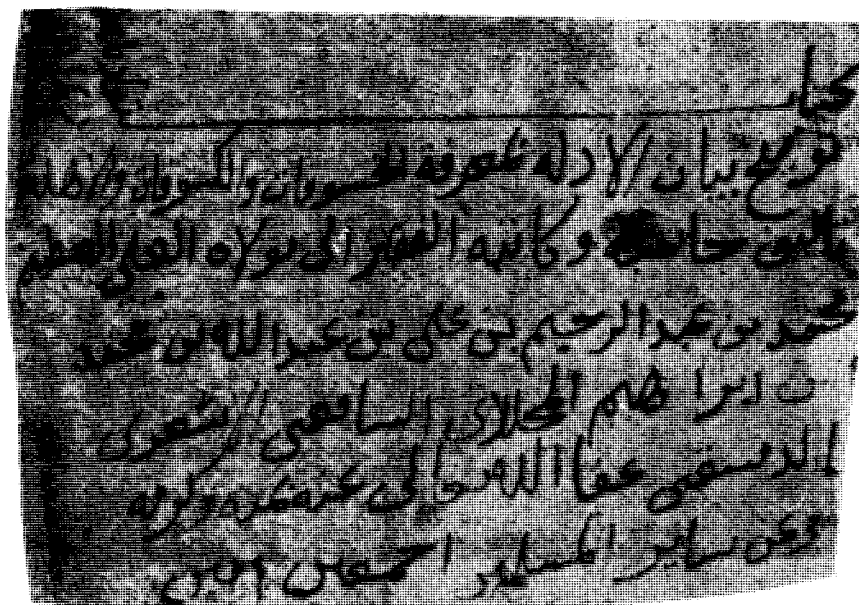 كتاب
توضيح بيان الادله لمعرفة الخسوفات والكسوفات والاهله
تاليف وكاتبه الفقير الى مولاه العلي العظيم
محمد بن عبد الرحيم بن علي بن عبد الله بن محمد
بن ابراهيم المخللاتي الشافعي الاشعري
الدمشقي عفا الله تعالى عنه بمنه وكرمه
وعن ساير المسلمين اجمعين امين